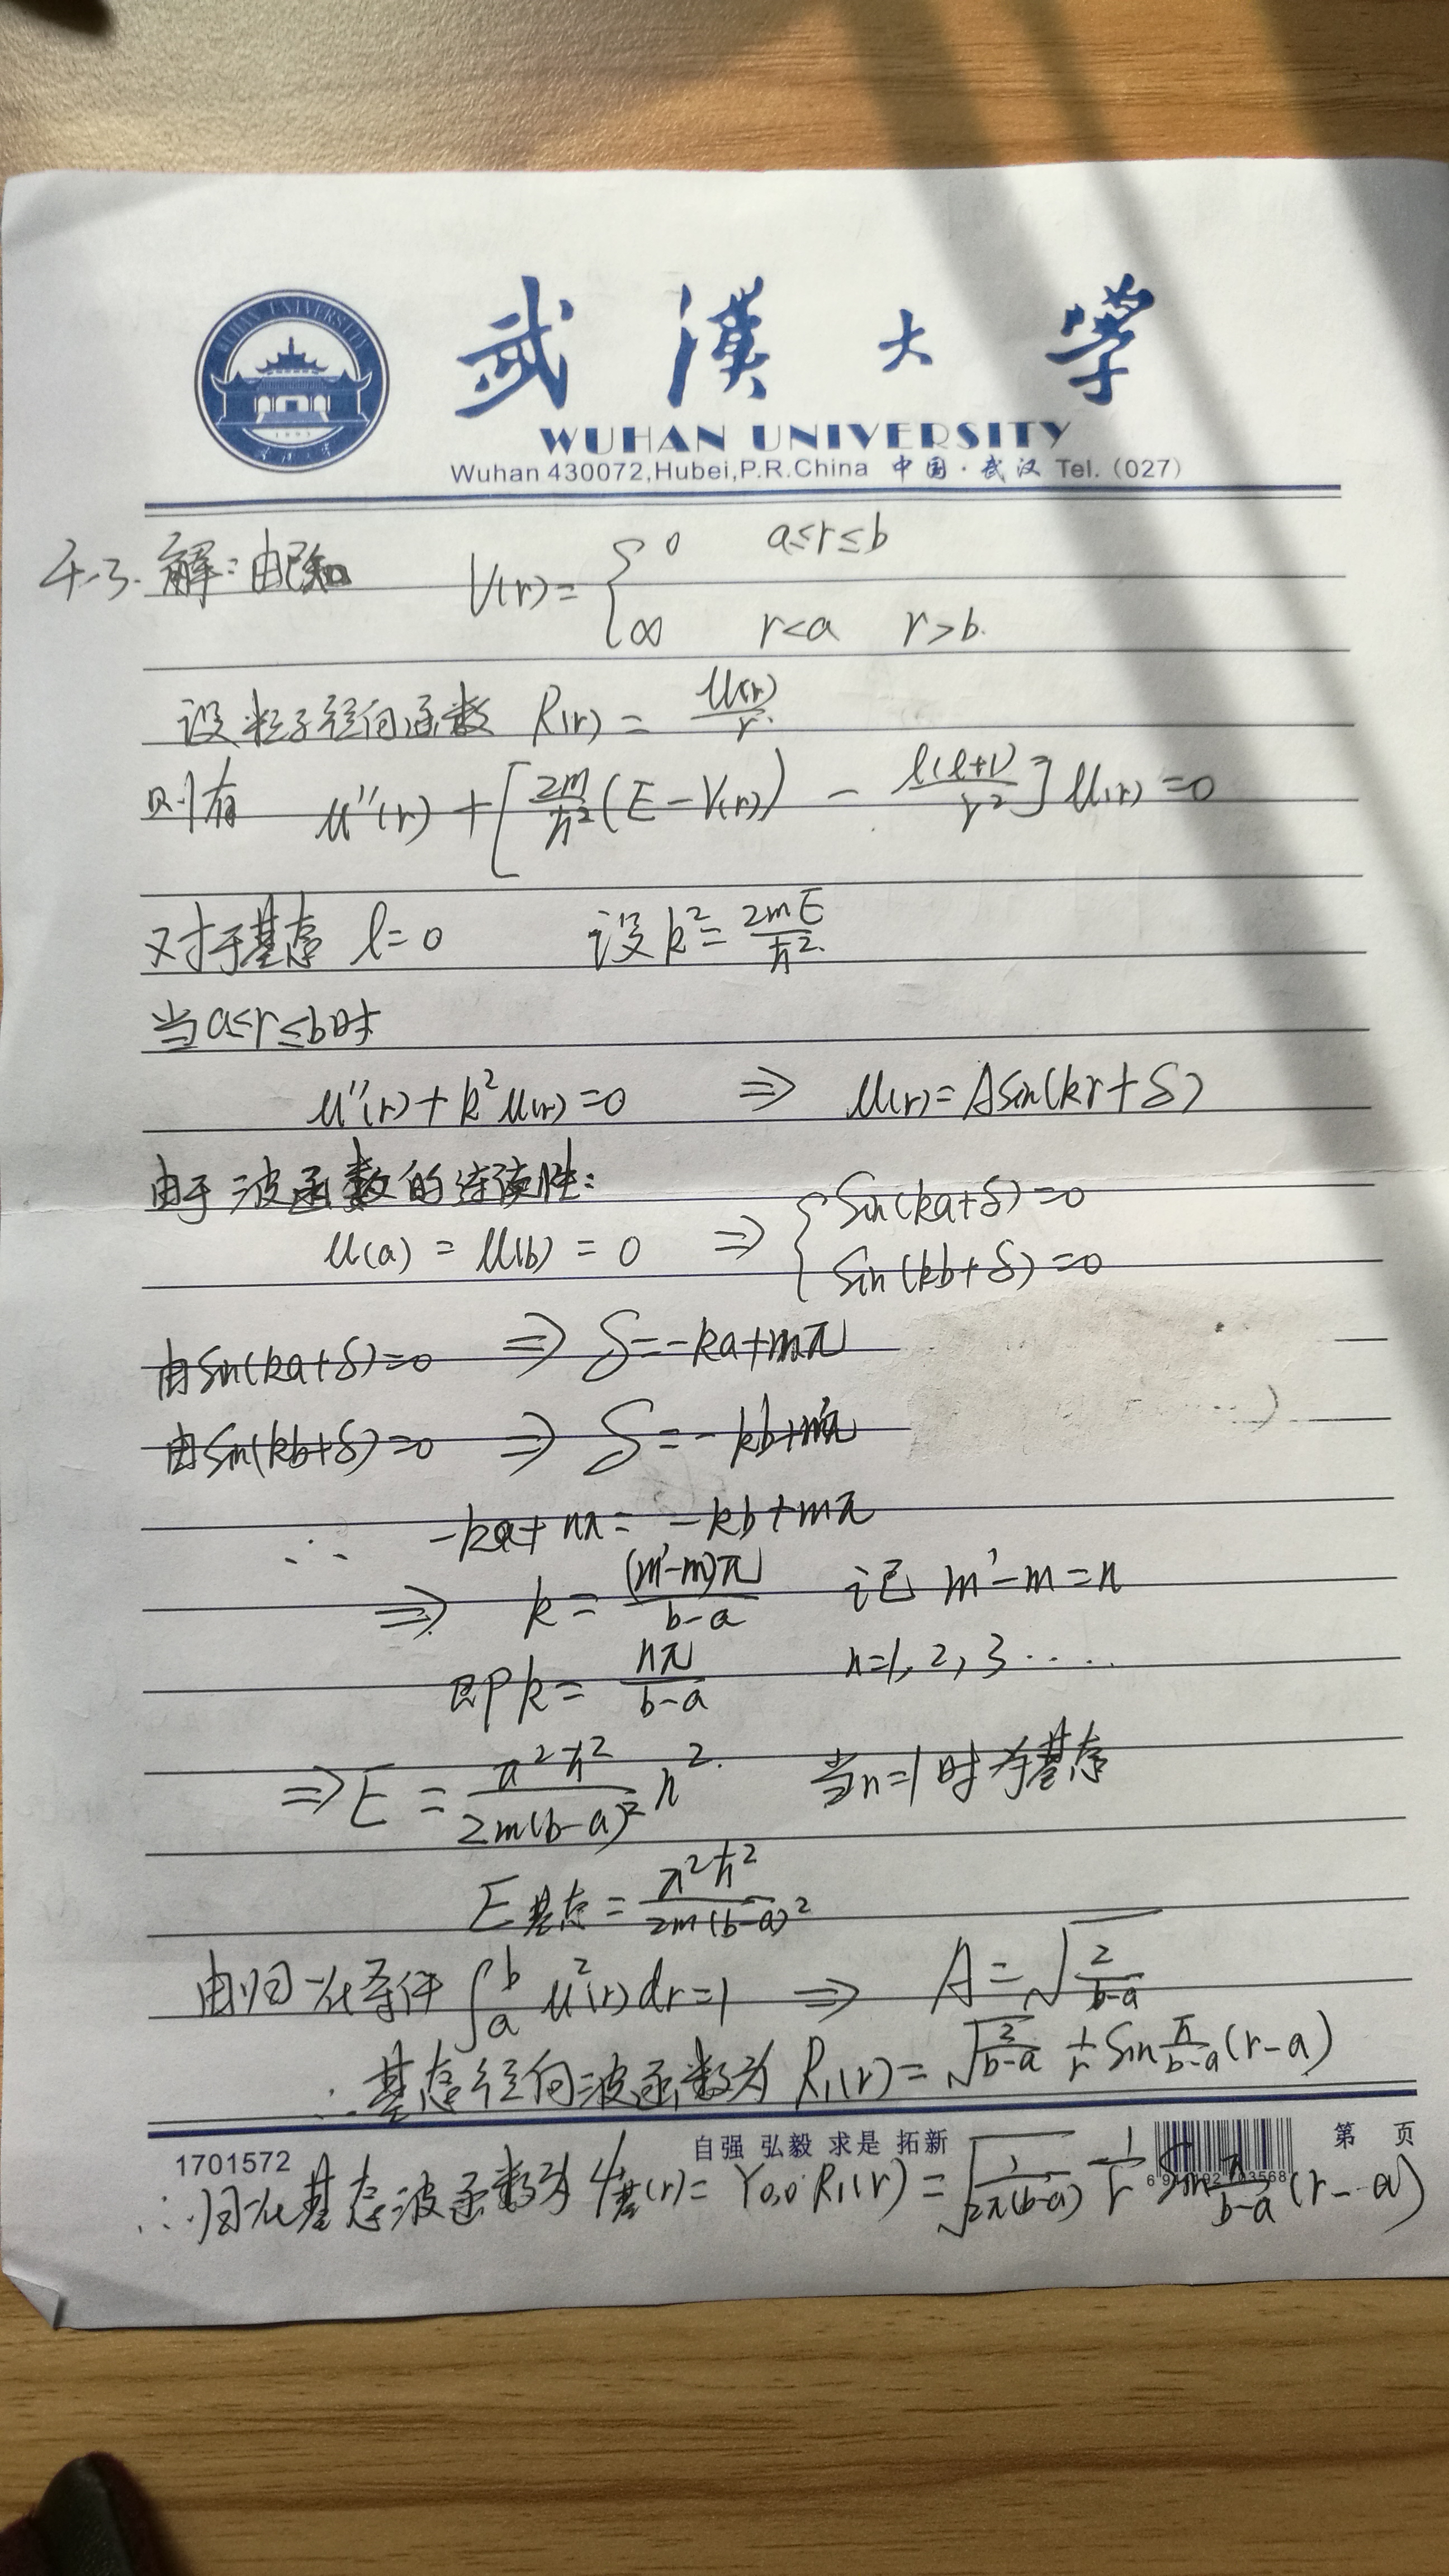 武漢大学
WUHAN UNIVERSITY
Wuhan 430072,Hubei,P.R.China 中国·武汉 Tel. (027)
4-3. 解: 由已知 V(r) = { 0 a≤r≤b
∞ r<a r>b.
设粒子径向函数 R(r) = u(r)/r.
则有 u''(r) + [2m/ħ² (E - V(r)) - l(l+1)/r²] u(r) = 0
又对于基态 l=0 设 k² = 2mE/ħ².
当a≤r≤b时
u''(r) + k²u(r) = 0 ⇒ u(r) = A sin(kr+δ)
由于波函数的连续性:
u(a) = u(b) = 0 ⇒ { sin(ka+δ)=0
sin(kb+δ)=0
由sin(ka+δ)=0 ⇒ δ=-ka+mπ
由sin(kb+δ)=0 ⇒ δ=-kb+m'π
∴ -ka+mπ = -kb+mπ
⇒ k = (m'-m)π/(b-a) 记 m'-m=n
即 k = nπ/(b-a) n=1, 2, 3 ....
⇒ E = π²ħ²/2m(b-a)² n². 当n=1时为基态
E基态 = π²ħ²/2m(b-a)²
由归一化条件 ∫ₐᵇ u²(r)dr=1 ⇒ A = √(2/(b-a))
∴ 基态径向波函数为 R₁(r) = √(2/(b-a)) 1/r sin π/(b-a) (r-a)
自强 弘毅 求是 拓新
第 页
1701572
∴归一化基态波函数为 ψ基(r) = Y₀,₀·R₁(r) = √(1/2π(b-a)) 1/r sin π/(b-a) (r-a)